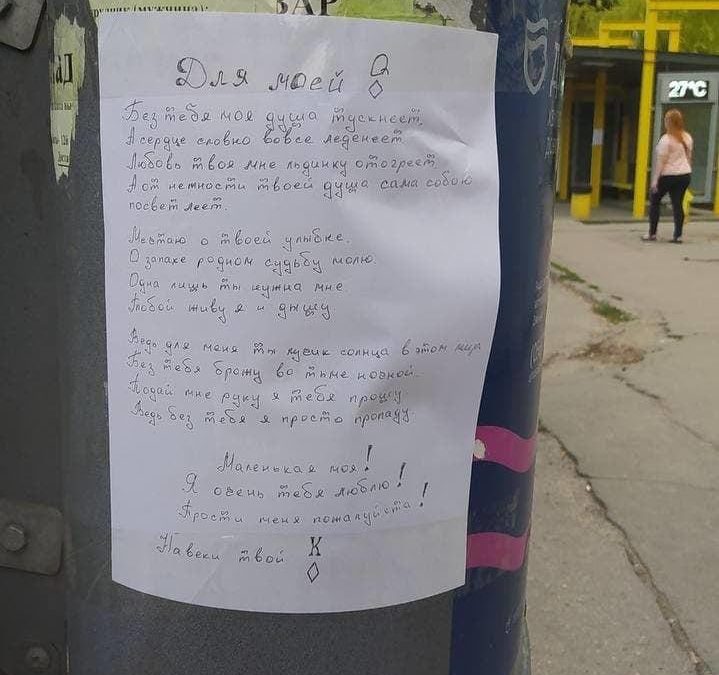 (мужчина):
ВАР
Для моей Q
◊
Без тебя моя душа тускнеет,
А сердце словно вовсе леденеет
Любовь твоя мне льдинку отогреет
А от нежности твоей душа сама собою
посветлеет.
Мечтаю о твоей улыбке.
О запахе родном судьбу молю.
Одна лишь ты нужна мне
Тобой живу я и дышу
Ведь для меня ты лучик солнца в этом мире
Без тебя брожу во тьме ночной.
Подай мне руку я тебя прошу
Ведь без тебя я просто пропаду
Маленькая моя!
Я очень тебя люблю!
Прости меня пожалуйста!
Навеки твой К
◊
27°C